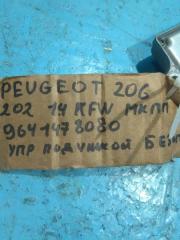 PEUGEOT 206
202 14 KFW МКПП
9641478080
УПР ПОДУШКОЙ БЕЗОП